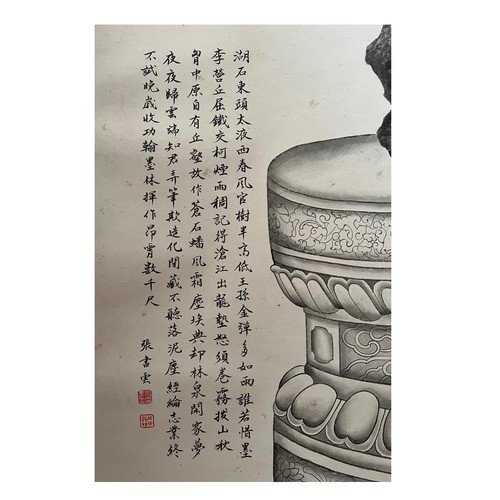 湖石東頭太液西春風宮樹半高低王孫金彈多如雨誰若惜墨
李營丘屈鐵交柯煙雨稠記得滄江出龍蟄怒須卷霧撥山秋
胷中原自有丘壑故作蒼石蟠風霜塵埃典却林泉閑家夢
夜夜歸雲端知君弄筆欺造化閉藏不聽落泥塵經綸志業終
不試晚歲收功翰墨林揮作昂霄數千尺
張書雲